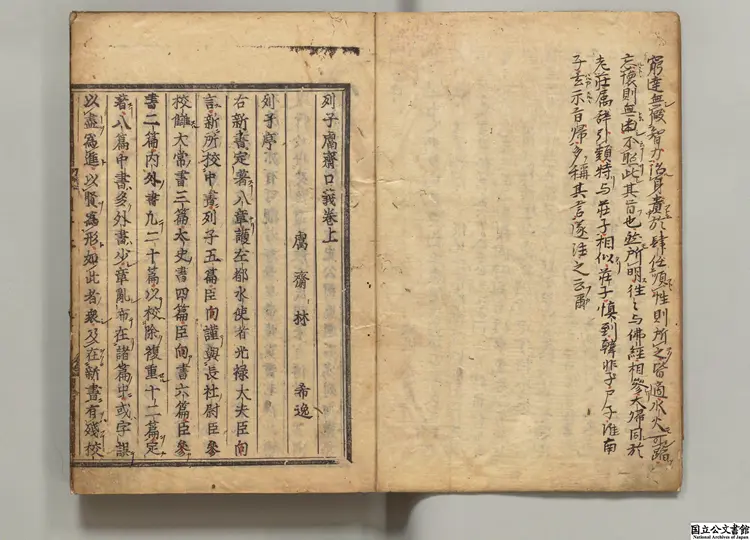 窮達無假智力治身貴於肆任順性則所之皆適水火可蹈
忘懷則無幽不照此其旨也然所明往々与佛經相參大歸同於
老莊属辞引類特与莊子相似莊子慎到韓非子尸子淮南
子玄示旨歸多稱其言遂注之云爾
列子鬳齋口義卷上
鬳齋林希逸
列子序
右新書定著八章護左都水使者光祿大夫臣向
言新所校中書列子五篇臣向謹與長社尉臣參
校讎大常書三篇太史書四篇臣向書六篇臣參
書二篇内外書凡二十篇以校除複重十二篇定
著八篇中書多外書少章亂布在諸篇中或字誤
以盡爲進以賢爲形如此者衆及在新書有殘校
国立公文書館
National Archives of Japan